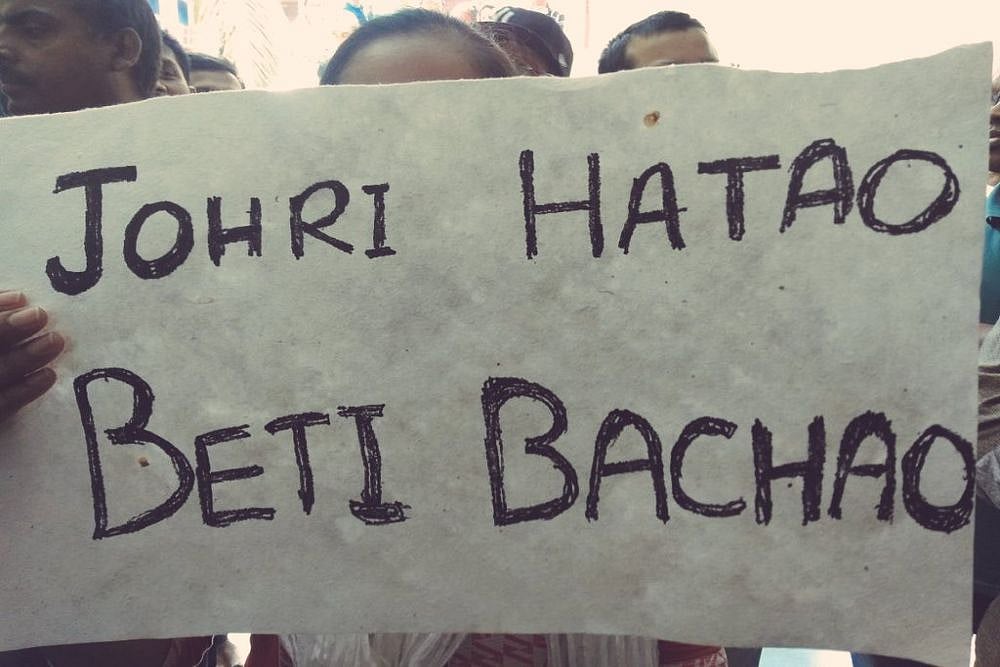 JOHRI HATAO
BETI BACHAO